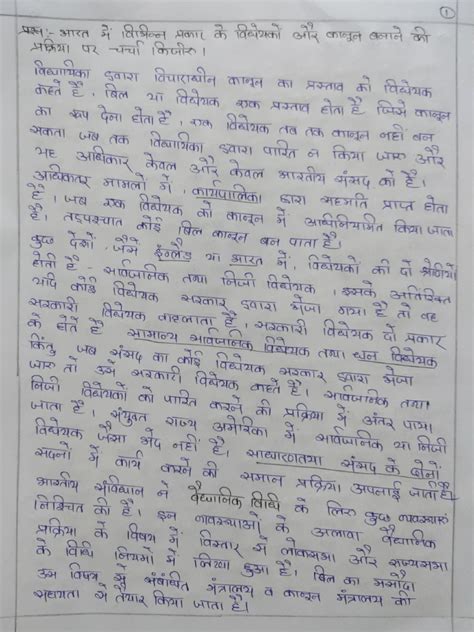 1
प्रश्न:- भारत में विभिन्न प्रकार के विधेयकों और कानून बनाने की
प्रक्रिया पर चर्चा कीजिए।
विधायिका द्वारा विचाराधीन कानून का प्रस्ताव को विधेयक
कहते हैं, बिल या विधेयक एक प्रस्ताव होता है जिसे कानून
का रूप देना होता है, एक विधेयक तब तक कानून नहीं बन
सकता जब तक विधायिका द्वारा पारित न किया जाए और
यह अधिकार केवल और केवल भारतीय संसद को है।
अधिकतर मामलों में, कार्यपालिका द्वारा सहमति प्राप्त होता
है। जब एक विधेयक को कानून में अधिनियमित किया जाता
है, तत्पश्चात कोई बिल कानून बन पाता है।
कुछ देशों, जैसे इंग्लैंड या भारत में, विधेयकों की दो श्रेणीयाँ
होती हैं - सार्वजनिक तथा निजी विधेयक, इसके अतिरिक्त
यदि कोई विधेयक सरकार द्वारा भेजा गया है तो वह
सरकारी विधेयक कहलाता है, सरकारी विधेयक दो प्रकार
के होते हैं सामान्य सार्वजनिक विधेयक तथा धन विधेयक
किंतु जब संसद का कोई विधेयक सरकार द्वारा भेजा
जाए तो उसे सरकारी विधेयक कहते हैं, सार्वजनिक तथा
निजी विधेयकों को पारित करने की प्रक्रिया में अंतर पाया
जाता है। संयुक्त राज्य अमेरिका में सार्वजनिक या निजी
विधेयक जैसा भेद नहीं है। साधारणतया संसद के दोनों
सदनों में कार्य करने की समान प्रक्रिया अपनाई जाती है।
भारतीय संविधान ने वैधानिक विधि के लिए कुछ व्यवस्थाएं
निश्चित की हैं। इन व्यवस्थाओं के अलावा वैधानिक
प्रक्रिया के विषय में विस्तार से लोकसभा और राज्यसभा
के विधि नियमों में लिखा हुआ है। बिल का मसौदा
उस विषय से संबंधित मंत्रालय व कानून मंत्रालय की
सहायता से तैयार किया जाता है।